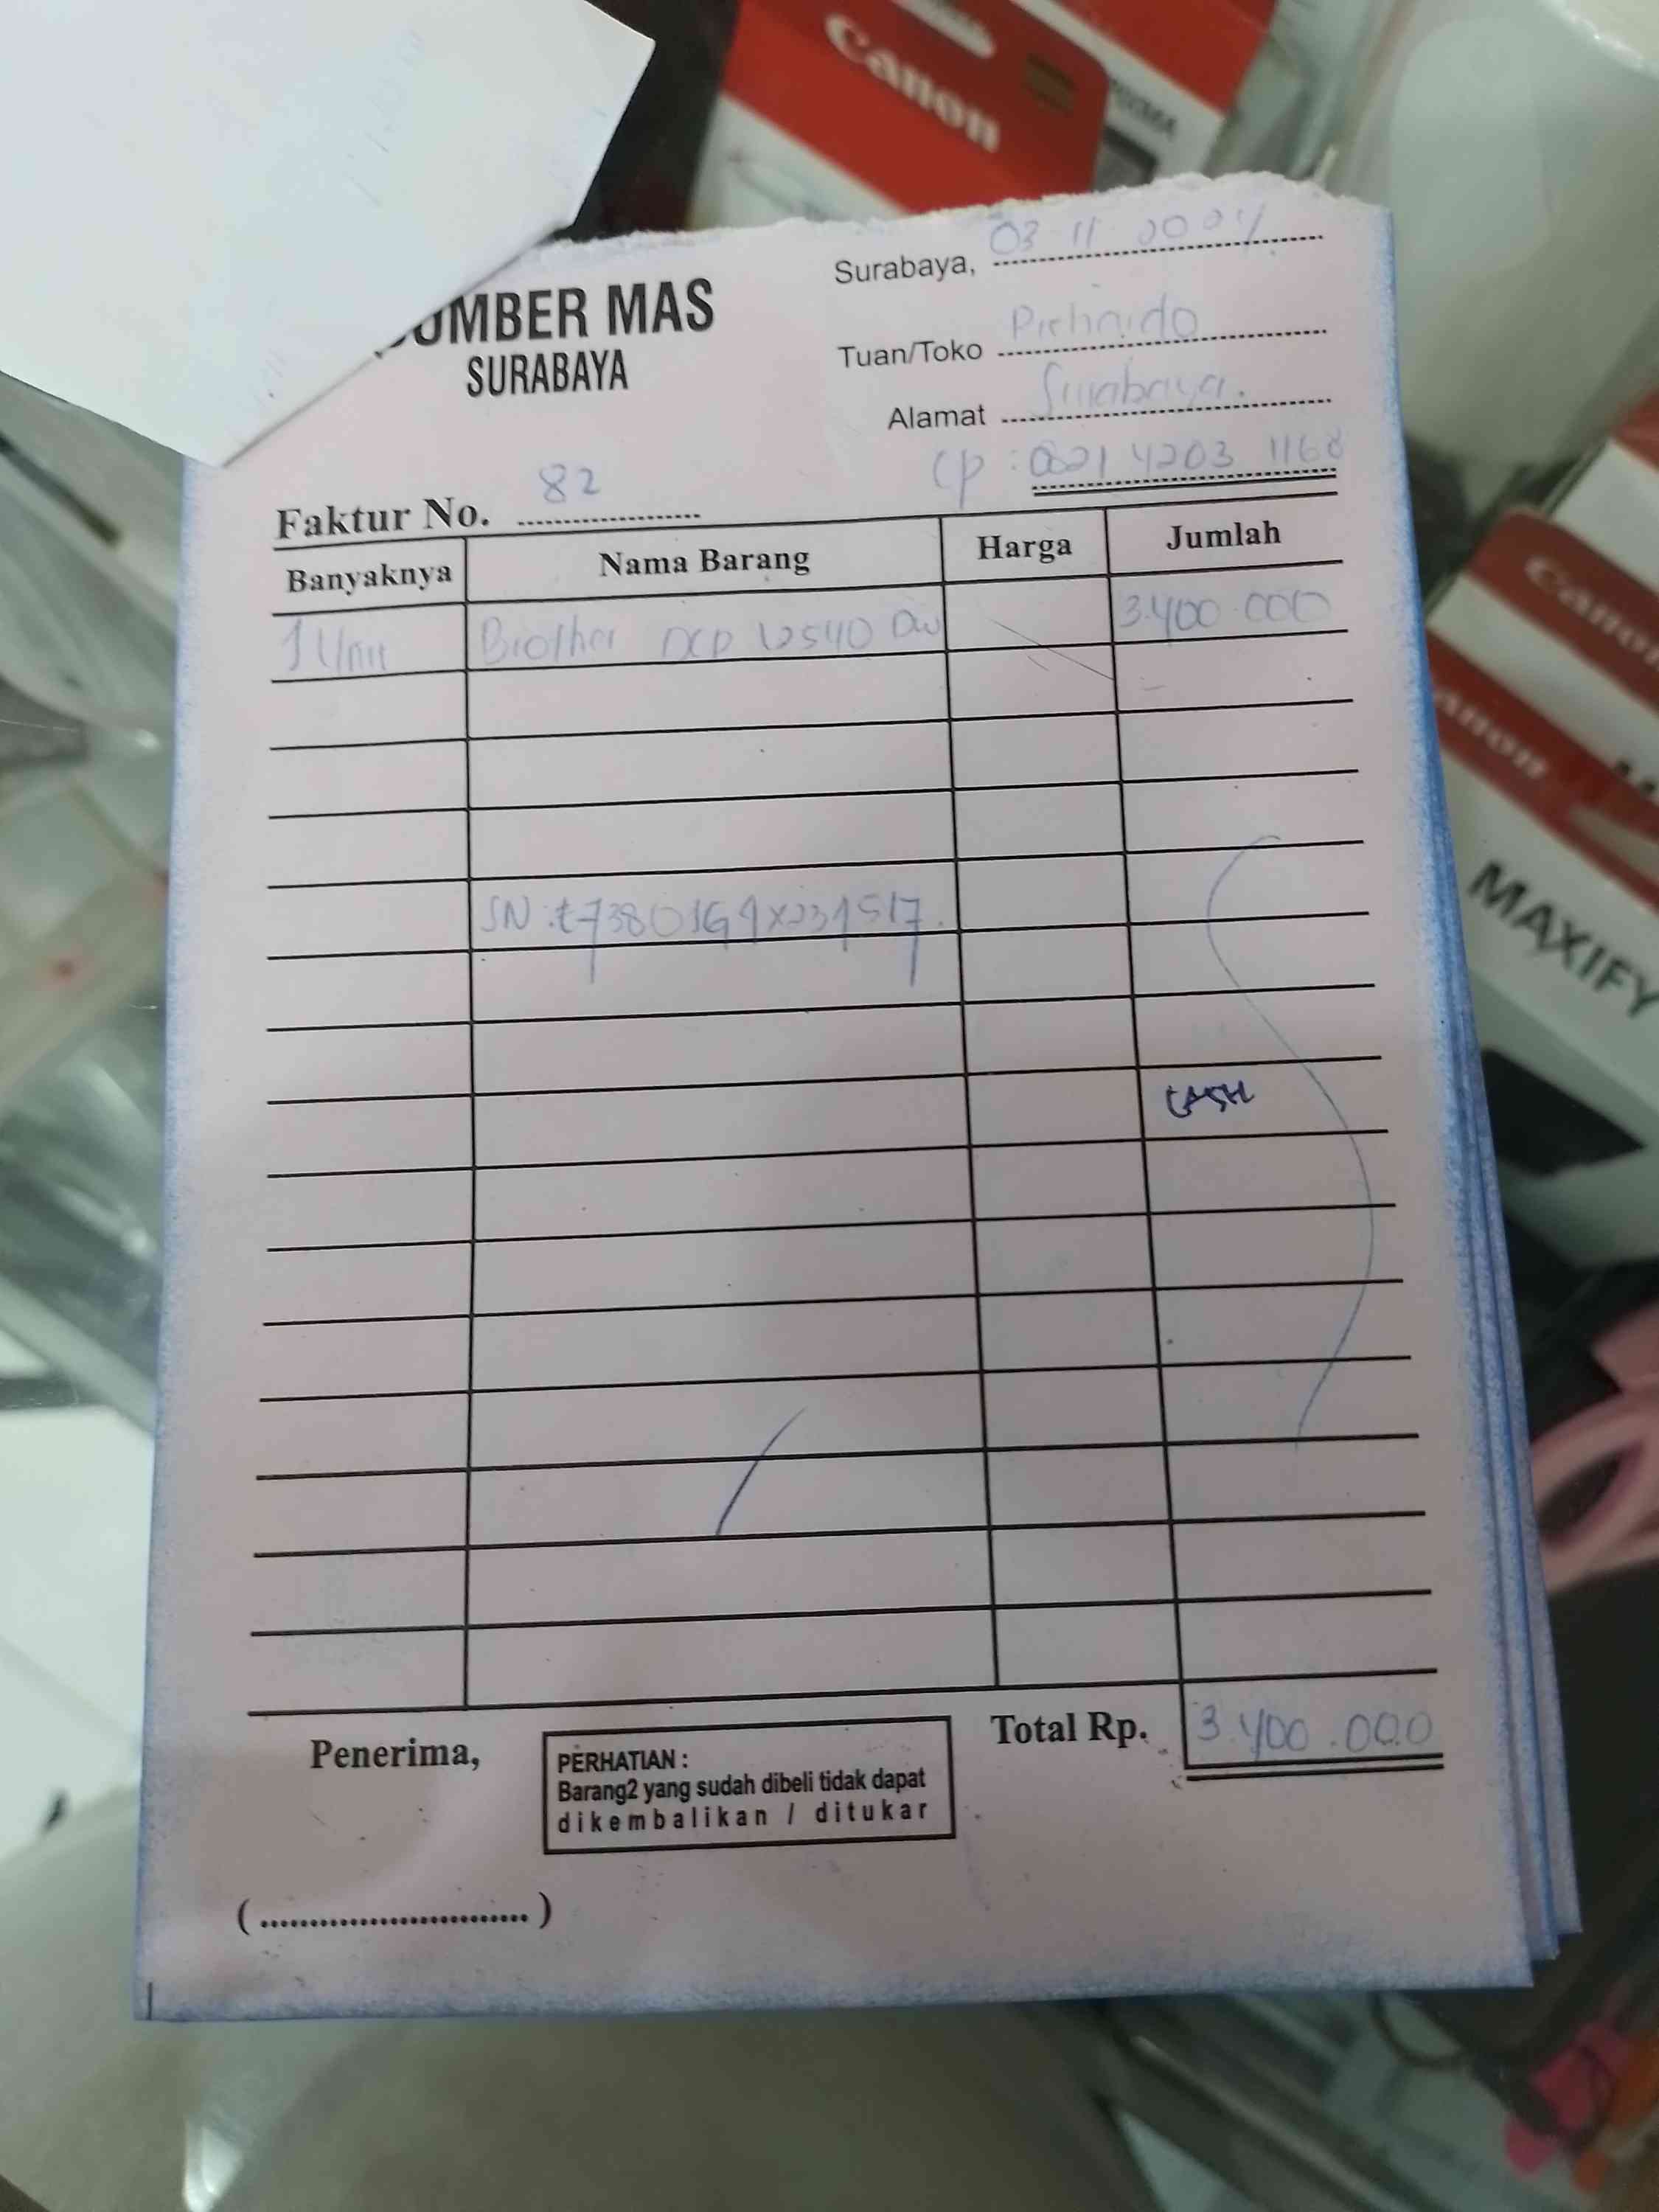 Canon
UMBER MAS
SURABAYA
Surabaya, 03 11
Tuan/Toko
Alamat Surabaya.
CP : 0821 4203 1168
Faktur No. 82
Banyaknya Nama Barang Harga Jumlah
1 Unit Brother DCP L2540 DW 3.400.000
SN :
CASH
Penerima,
PERHATIAN :
Barang2 yang sudah dibeli tidak dapat
dikembalikan / ditukar
Total Rp. 3.400.000
(..........................)
Canon
Canon
MAXIFY